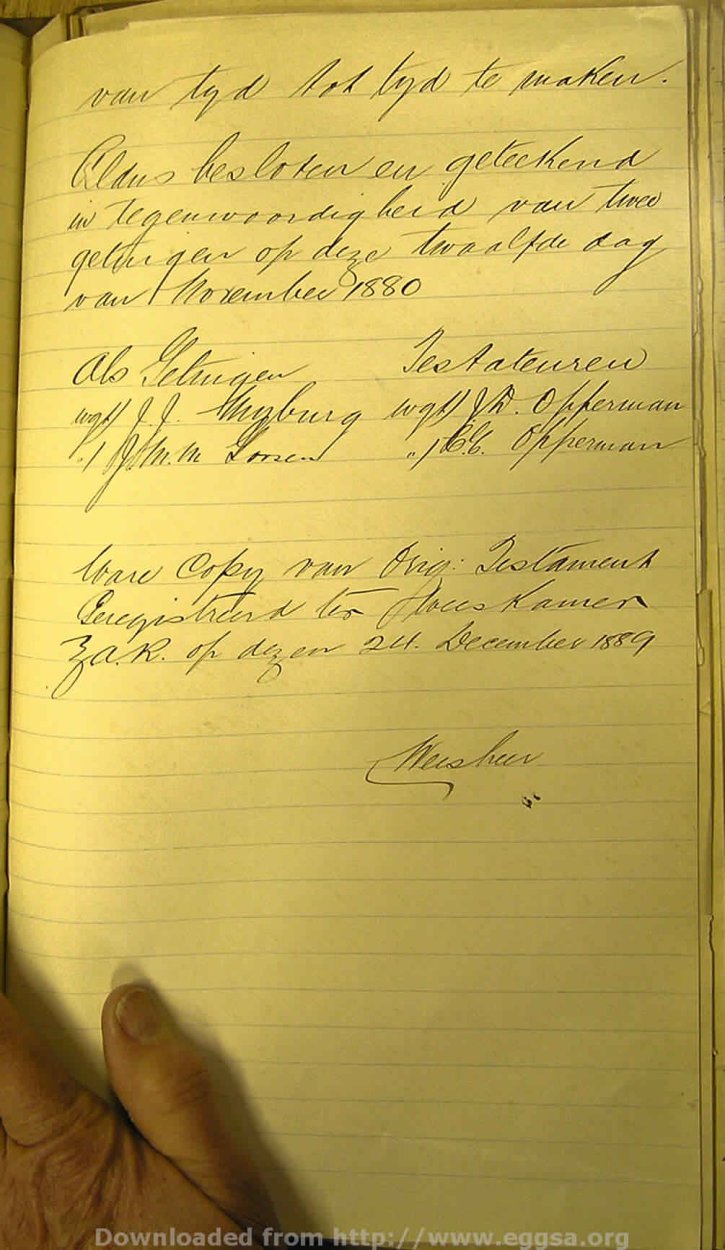 van tyd tot tyd te maken.
Aldus besloten en geteekend
in tegenwoordigheid van twee
getuigen op deze twaalfde dag
van November 1880
Als Getuigen Testateuren
wg) J. J. Myburg wgt) J.D. Opperman
„ ) J.M.M. „ ) C.C. Opperman
Ware Copy van Orig: Testament
Geregistreerd ter Weeskamer
Z.A.R. op dezen 24. December 1889
Weesheer
Downloaded from http://www.eggsa.org